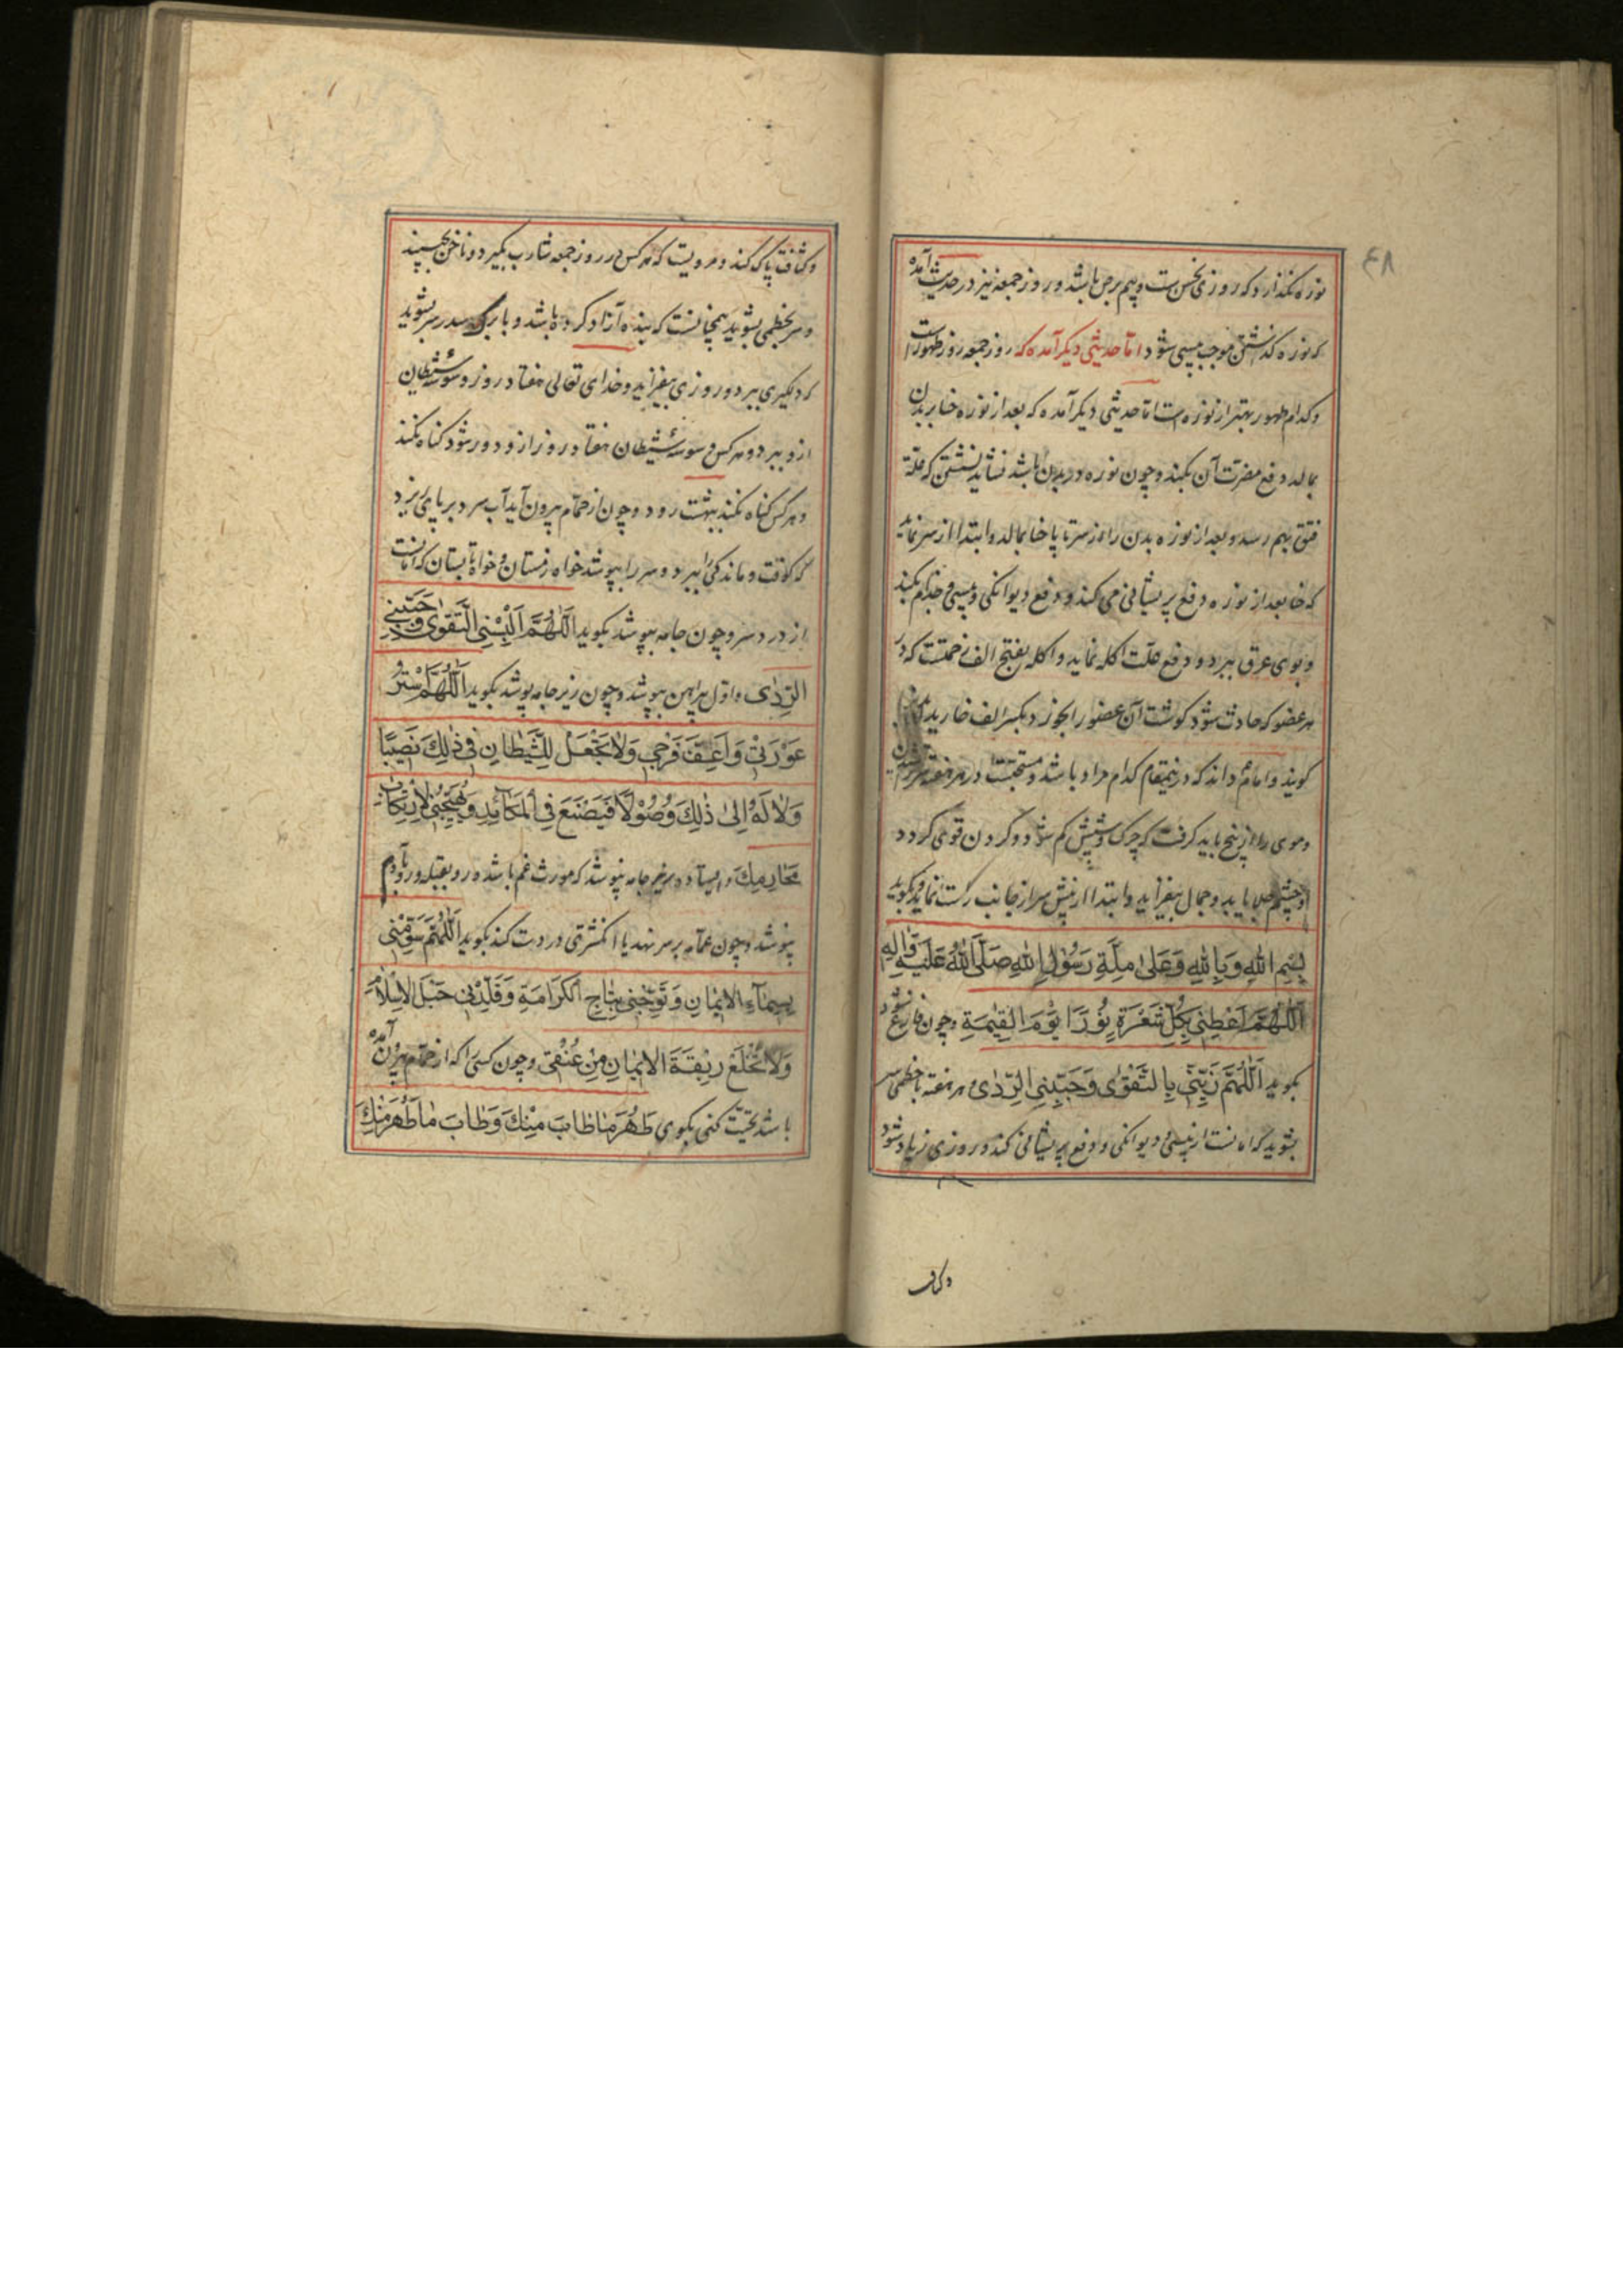 ۴۸
نوره نگذارد که روزی نحس است و بیم برص باشد و روز جمعه نیز در حدیث آمده
که نوره گذاشتن موجب پیسی شود اما حدیثی دیگر آمده که روز جمعه روز طهور است
و کدام طهور بهتر از نوره است اما حدیثی دیگر آمده که بعد از نوره حنا بر بدن
بمالد دفع مضرت آن بکند و چون نوره در بدن باشد نشاید نشستن که علة
فتق بهم رسد و بعد از نوره بدن را از سر تا پا حنا بمالد و ابتدا از سر نماید
که حنا بعد از نوره دفع پریشانی می کند و دفع دیوانگی و پیسی و جذام بکند
و بوی عرق ببرد و دفع علت اکله نماید و اکله بفتح الف زحمتست که در
هر عضو که حادث شود گوشت آن عضو را بخورد و بکسر الف خاریدن
کویند و امام داند که درینمقام کدام مراد باشد و مستحبست در هر هفته سر تراشیدن
و موی را از بیخ باید گرفت که چرک و شپش کم شود و گردن قوی گردد
و چشم جلا یابد و جمال بیفزاید و ابتدا از پیش سر از جانب راست نماید و بگوید
بِسْمِ اللهِ وَبِاللهِ وَعَلىٰ مِلَّةِ رَسُوْلِ اللهِ صَلَّى اللهُ عَلَيْهِ وَاٰلِهِ
اَللّٰهُمَّ اَعْطِنِي بِكُلِّ شَعْرَةٍ نُوْرًا يَوْمَ الْقِيٰمَةِ و چون فارغ شود
بگوید اَللّٰهُمَّ زَيِّنِّي بِالتَّقْوٰى وَجَنِّبْنِي الرَّدٰى و هر هفته با خطمی سر
بشوید که امانست از پیسی و دیوانگی و دفع پریشانی کند و روزی زیاد شود
وکثاف
و کثافت پاک کند و مرویست که هر کس در روز جمعه شارب بگیرد و ناخن بچیند
و سر بخطمی بشوید همچنانست که بنده آزاد کرده باشد و با برگ سدر سر بشوید
که دلگیری ببرد و روزی بیفزاید و خدای تعالی هفتاد روز وسوسهٔ شیطان
ازو ببرد و هر کس وسوسهٔ شیطان هفتاد روز ازو دور شود گناه نکند
و هر کس گناه نکند ببهشت رود و چون از حمام بیرون آید آب سرد بر پای ریزد
که کوفت و ماندگی را ببرد و سر را بپوشد خواه زمستان و خواه تابستان که امانست
از درد سر و چون جامه بپوشد بگوید اَللّٰهُمَّ اَلْبِسْنِي التَّقْوٰى وَجَنِّبْنِي
الرَّدٰى و اول پیراهن بپوشد و چون زیرجامه پوشد بگوید اَللّٰهُمَّ اسْتُرْ
عَوْرَتِيْ وَاَعِفَّ فَرْجِي وَلَا تَجْعَلْ لِلشَّيْطَانِ فِي ذٰلِكَ نَصِيْبًا
وَلَا لَهُ اِلىٰ ذٰلِكَ وُصُوْلًا فَيَصْنَعَ فِي الْمَكَائِدَ وَيُهَيِّجُنِي لِارْتِكَابِ
مَحَارِمِكَ و ایستاده زیرجامه نپوشد که مورث غم باشد و رو بقبله و رو بآدم
نپوشد و چون عمامه بر سر نهد یا انگشتری در دست کند بگوید اَللّٰهُمَّ سَوِّمْنِي
بِسِيْمَاءِ الْاِيْمَانِ وَتَوِّجْنِي بِتَاجِ الْكَرَامَةِ وَقَلِّدْنِي حَبْلَ الْاِسْلَامِ
وَلَا تَخْلَعْ رِبْقَةَ الْاِيْمَانِ مِنْ عُنُقِيْ و چون کسی را که از حمام بیرون آمده
باشد تحیت کنی بگوی طَهُرَ مَا طَابَ مِنْكَ وَطَابَ مَا طَهُرَ مِنْكَ